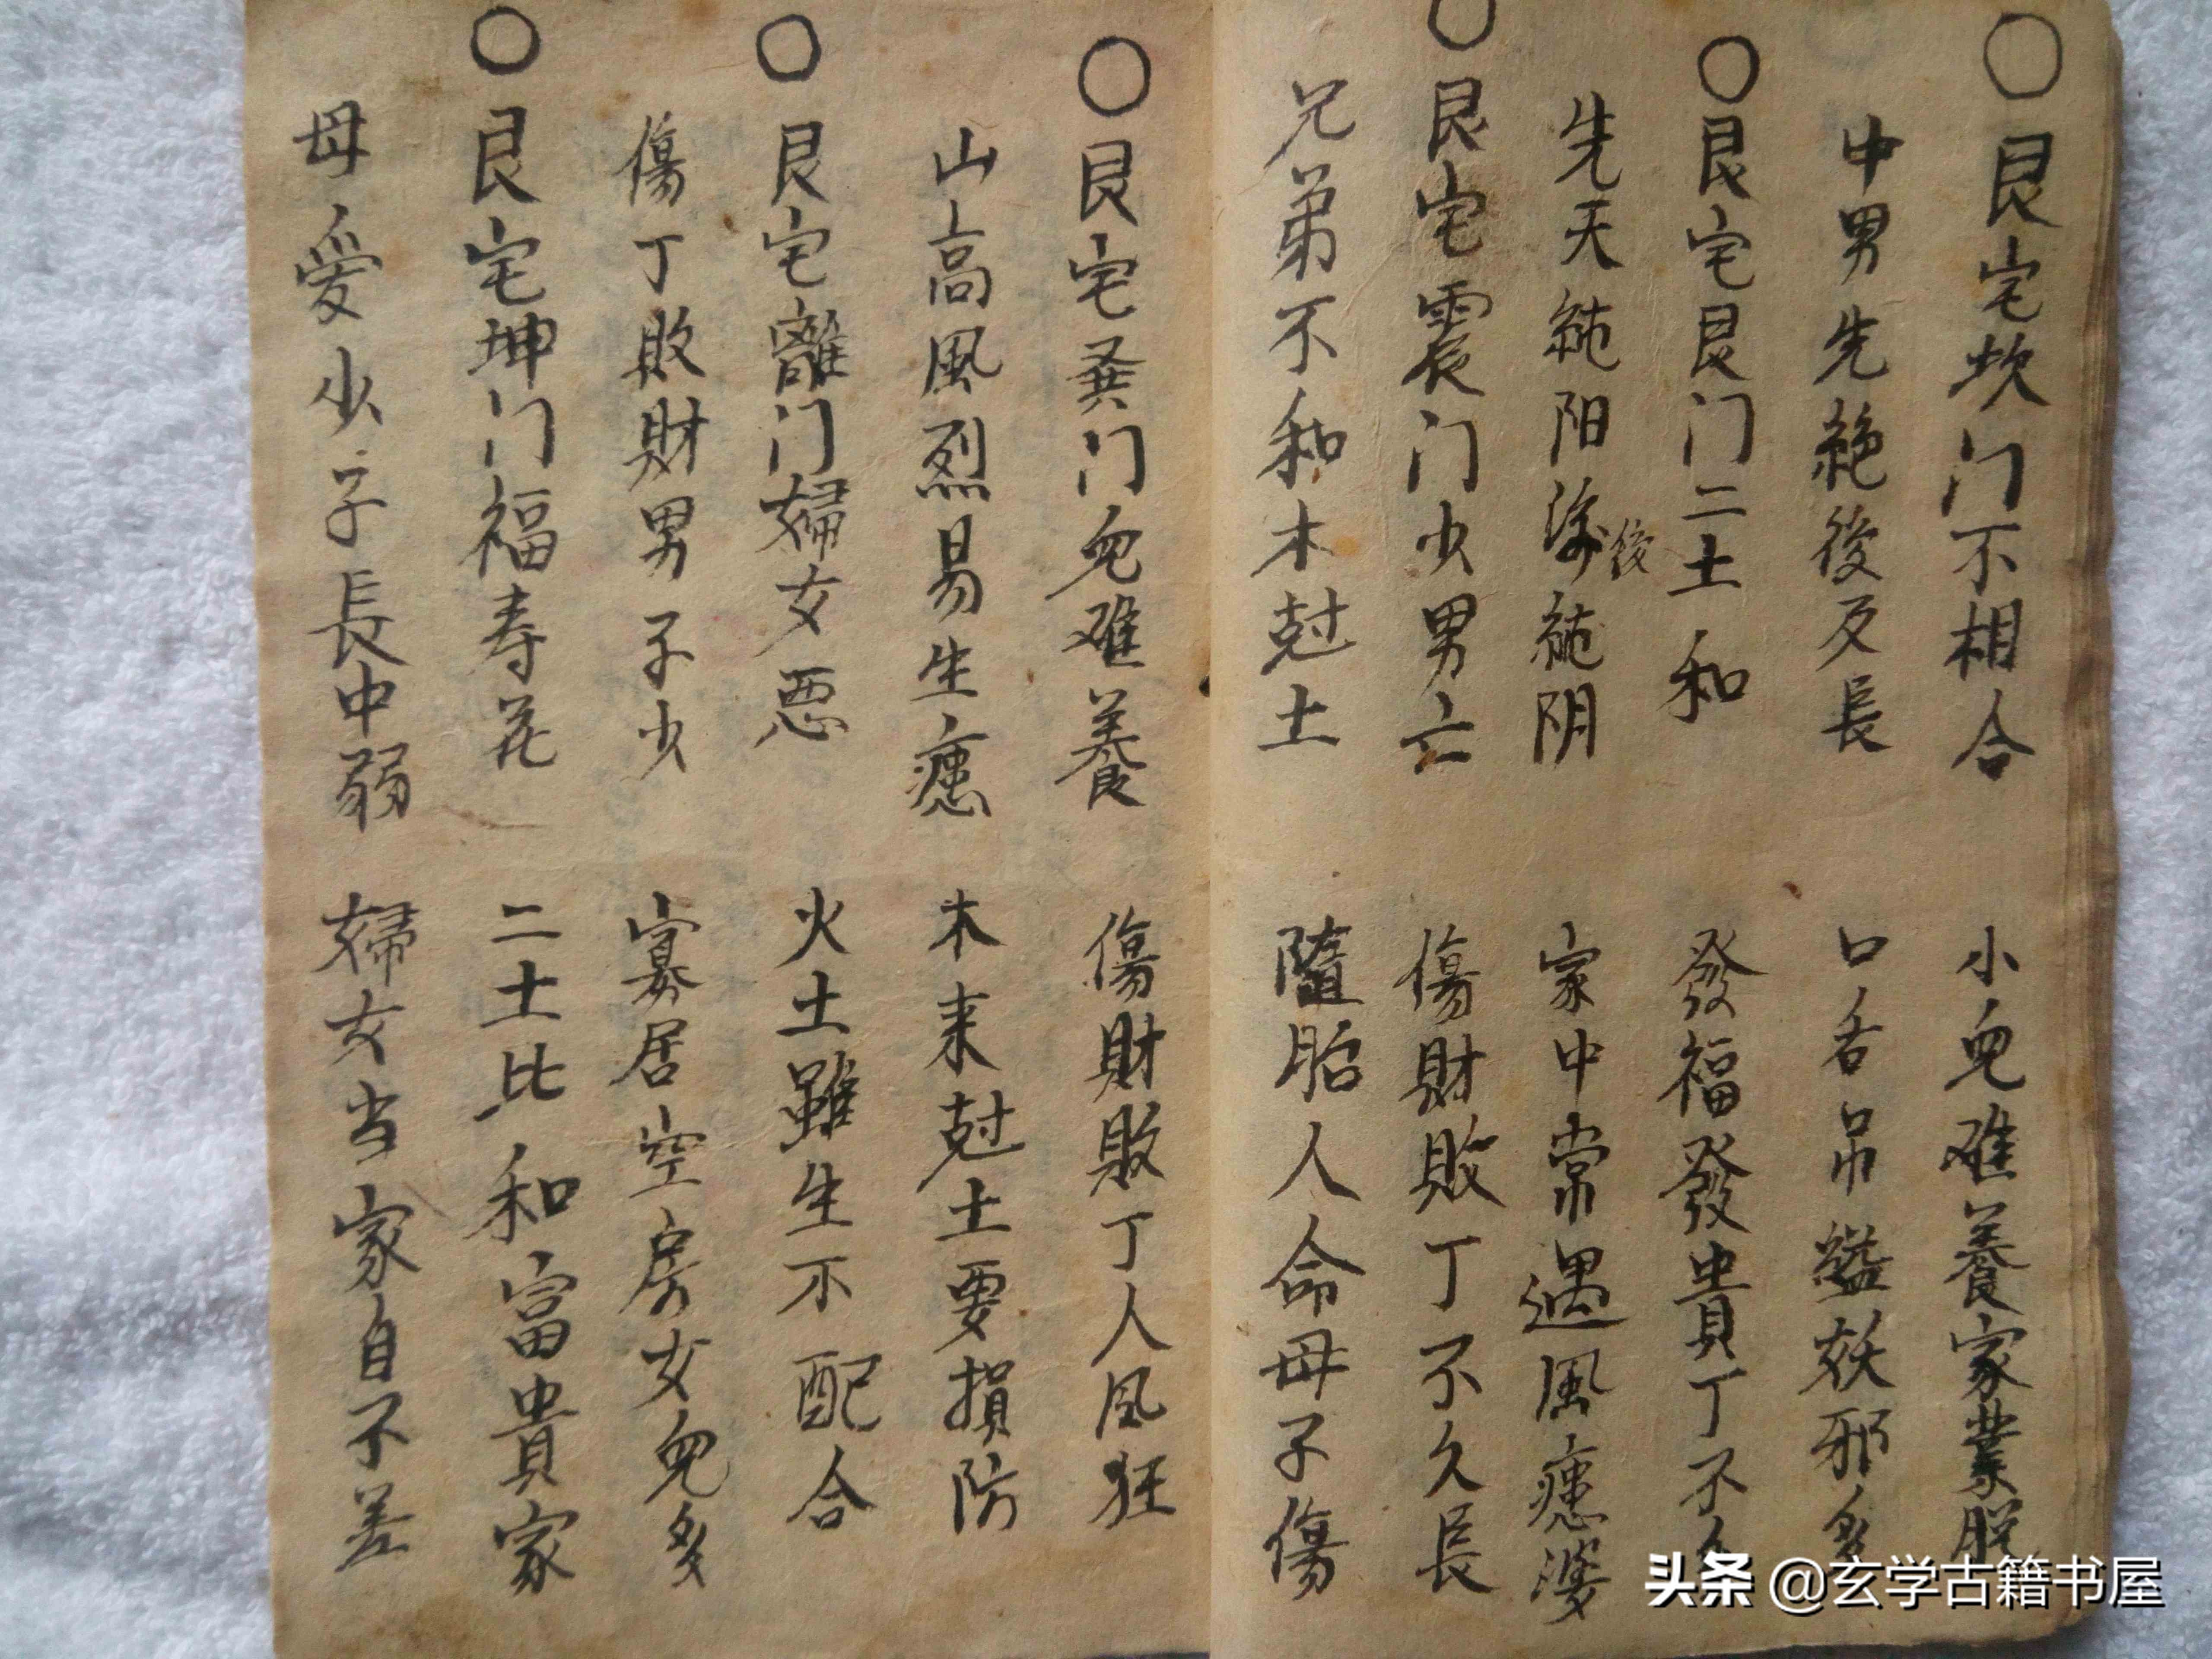 ○艮宅坎门不相合 小兒难養家業脫
中男先絶後及長 口舌吊縊妖邪多
○艮宅艮门二土和 發福發貴丁不
先天純阳後純阴 家中常遇風瘧婆
○艮宅震门少男亡 傷財敗丁不久長
兄弟不和木尅土 隨胎人命母子傷
○艮宅巽门兒难養 傷財敗丁人风狂
山高風烈易生瘧 木来尅土要損防
○艮宅離门婦女恶 火土雖生不配合
傷丁敗財男子少 寡居空房女兒多
○艮宅坤门福寿花 二土比和富貴家
母爱少子長中弱 婦女当家自不差
头条 @玄学古籍书屋